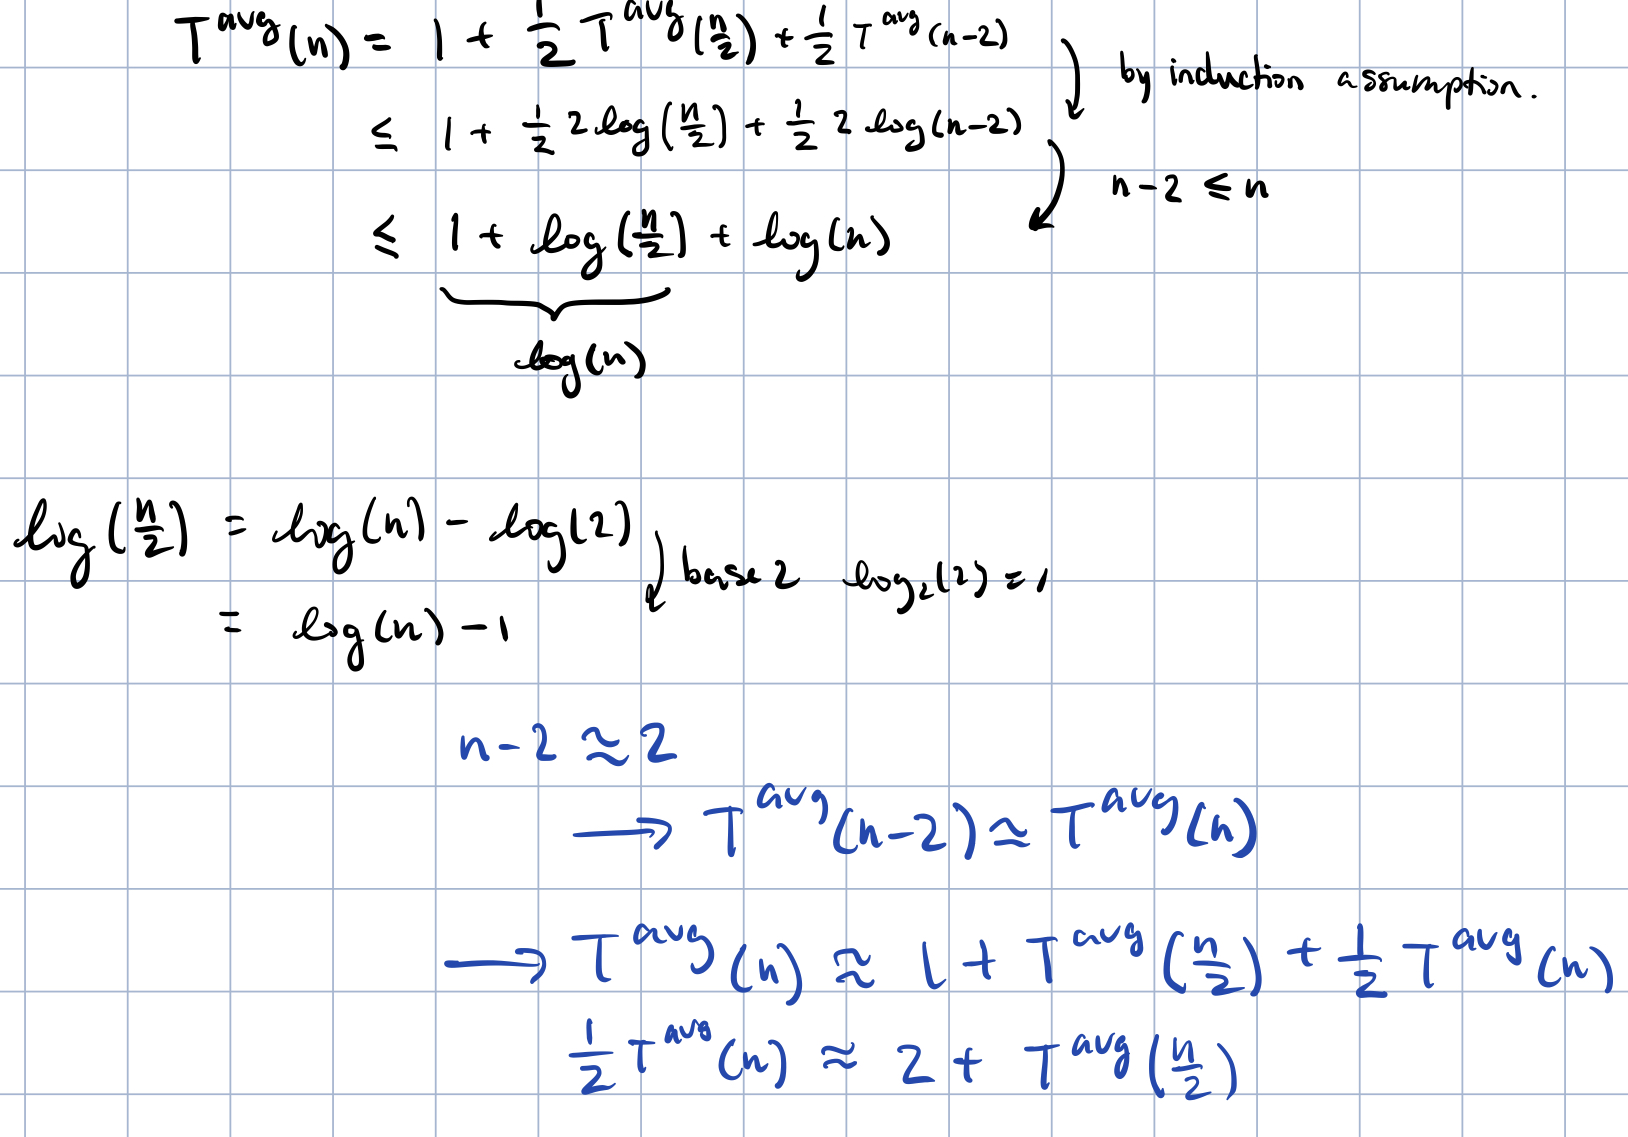 T^avg(n) = 1 + 1/2 T^avg(n/2) + 1/2 T^avg(n-2)
by induction assumption.
≤ 1 + 1/2 2 log(n/2) + 1/2 2 log(n-2)
n-2 ≤ n
≤ 1 + log(n/2) + log(n)
log(n)
log(n/2) = log(n) - log(2)
base 2 log₂(2) = 1
= log(n) - 1
n-2 ≈ 2
→ T^avg(n-2) ≈ T^avg(n)
→ T^avg(n) ≈ 1 + T^avg(n/2) + 1/2 T^avg(n)
1/2 T^avg(n) ≈ 2 + T^avg(n/2)